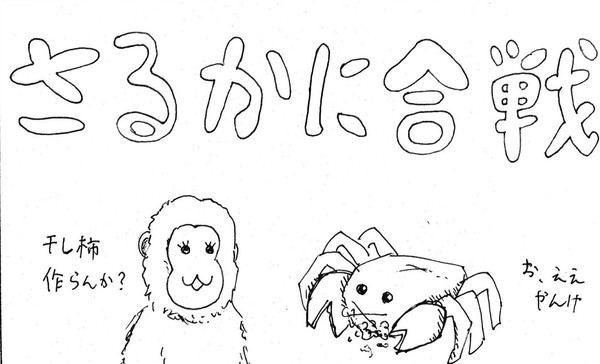 さるかに合戦
干し柿
作らんか?
お、ええ
やんけ